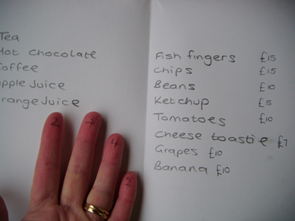 Tea
Hot Chocolate
Coffee
Apple Juice
Orange Juice
Fish fingers £15
chips £15
Beans £10
Ketchup £5
Tomatoes £10
cheese toastie £7
Grapes £10
Banana £10